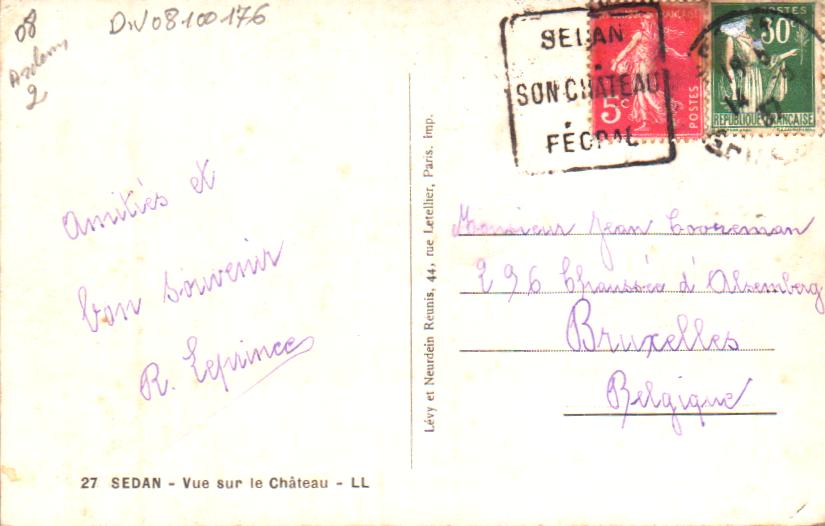 08
Ardenn
2
DIV08100176
SEDAN
SON CHATEAU
FÉODAL
RÉPUBLIQUE FRANÇAISE
5c
POSTES
POSTES
80
RÉPUBLIQUE FRANÇAISE
Amitiés et
bon souvenir
R. Leprince
Lévy et Neurdein Reunis, 44, rue Letellier, Paris. imp.
Monsieur Jean Cooreman
296 Chaussée d'Alsemberg
Bruxelles
Belgique
27 SEDAN - Vue sur le Château - LL